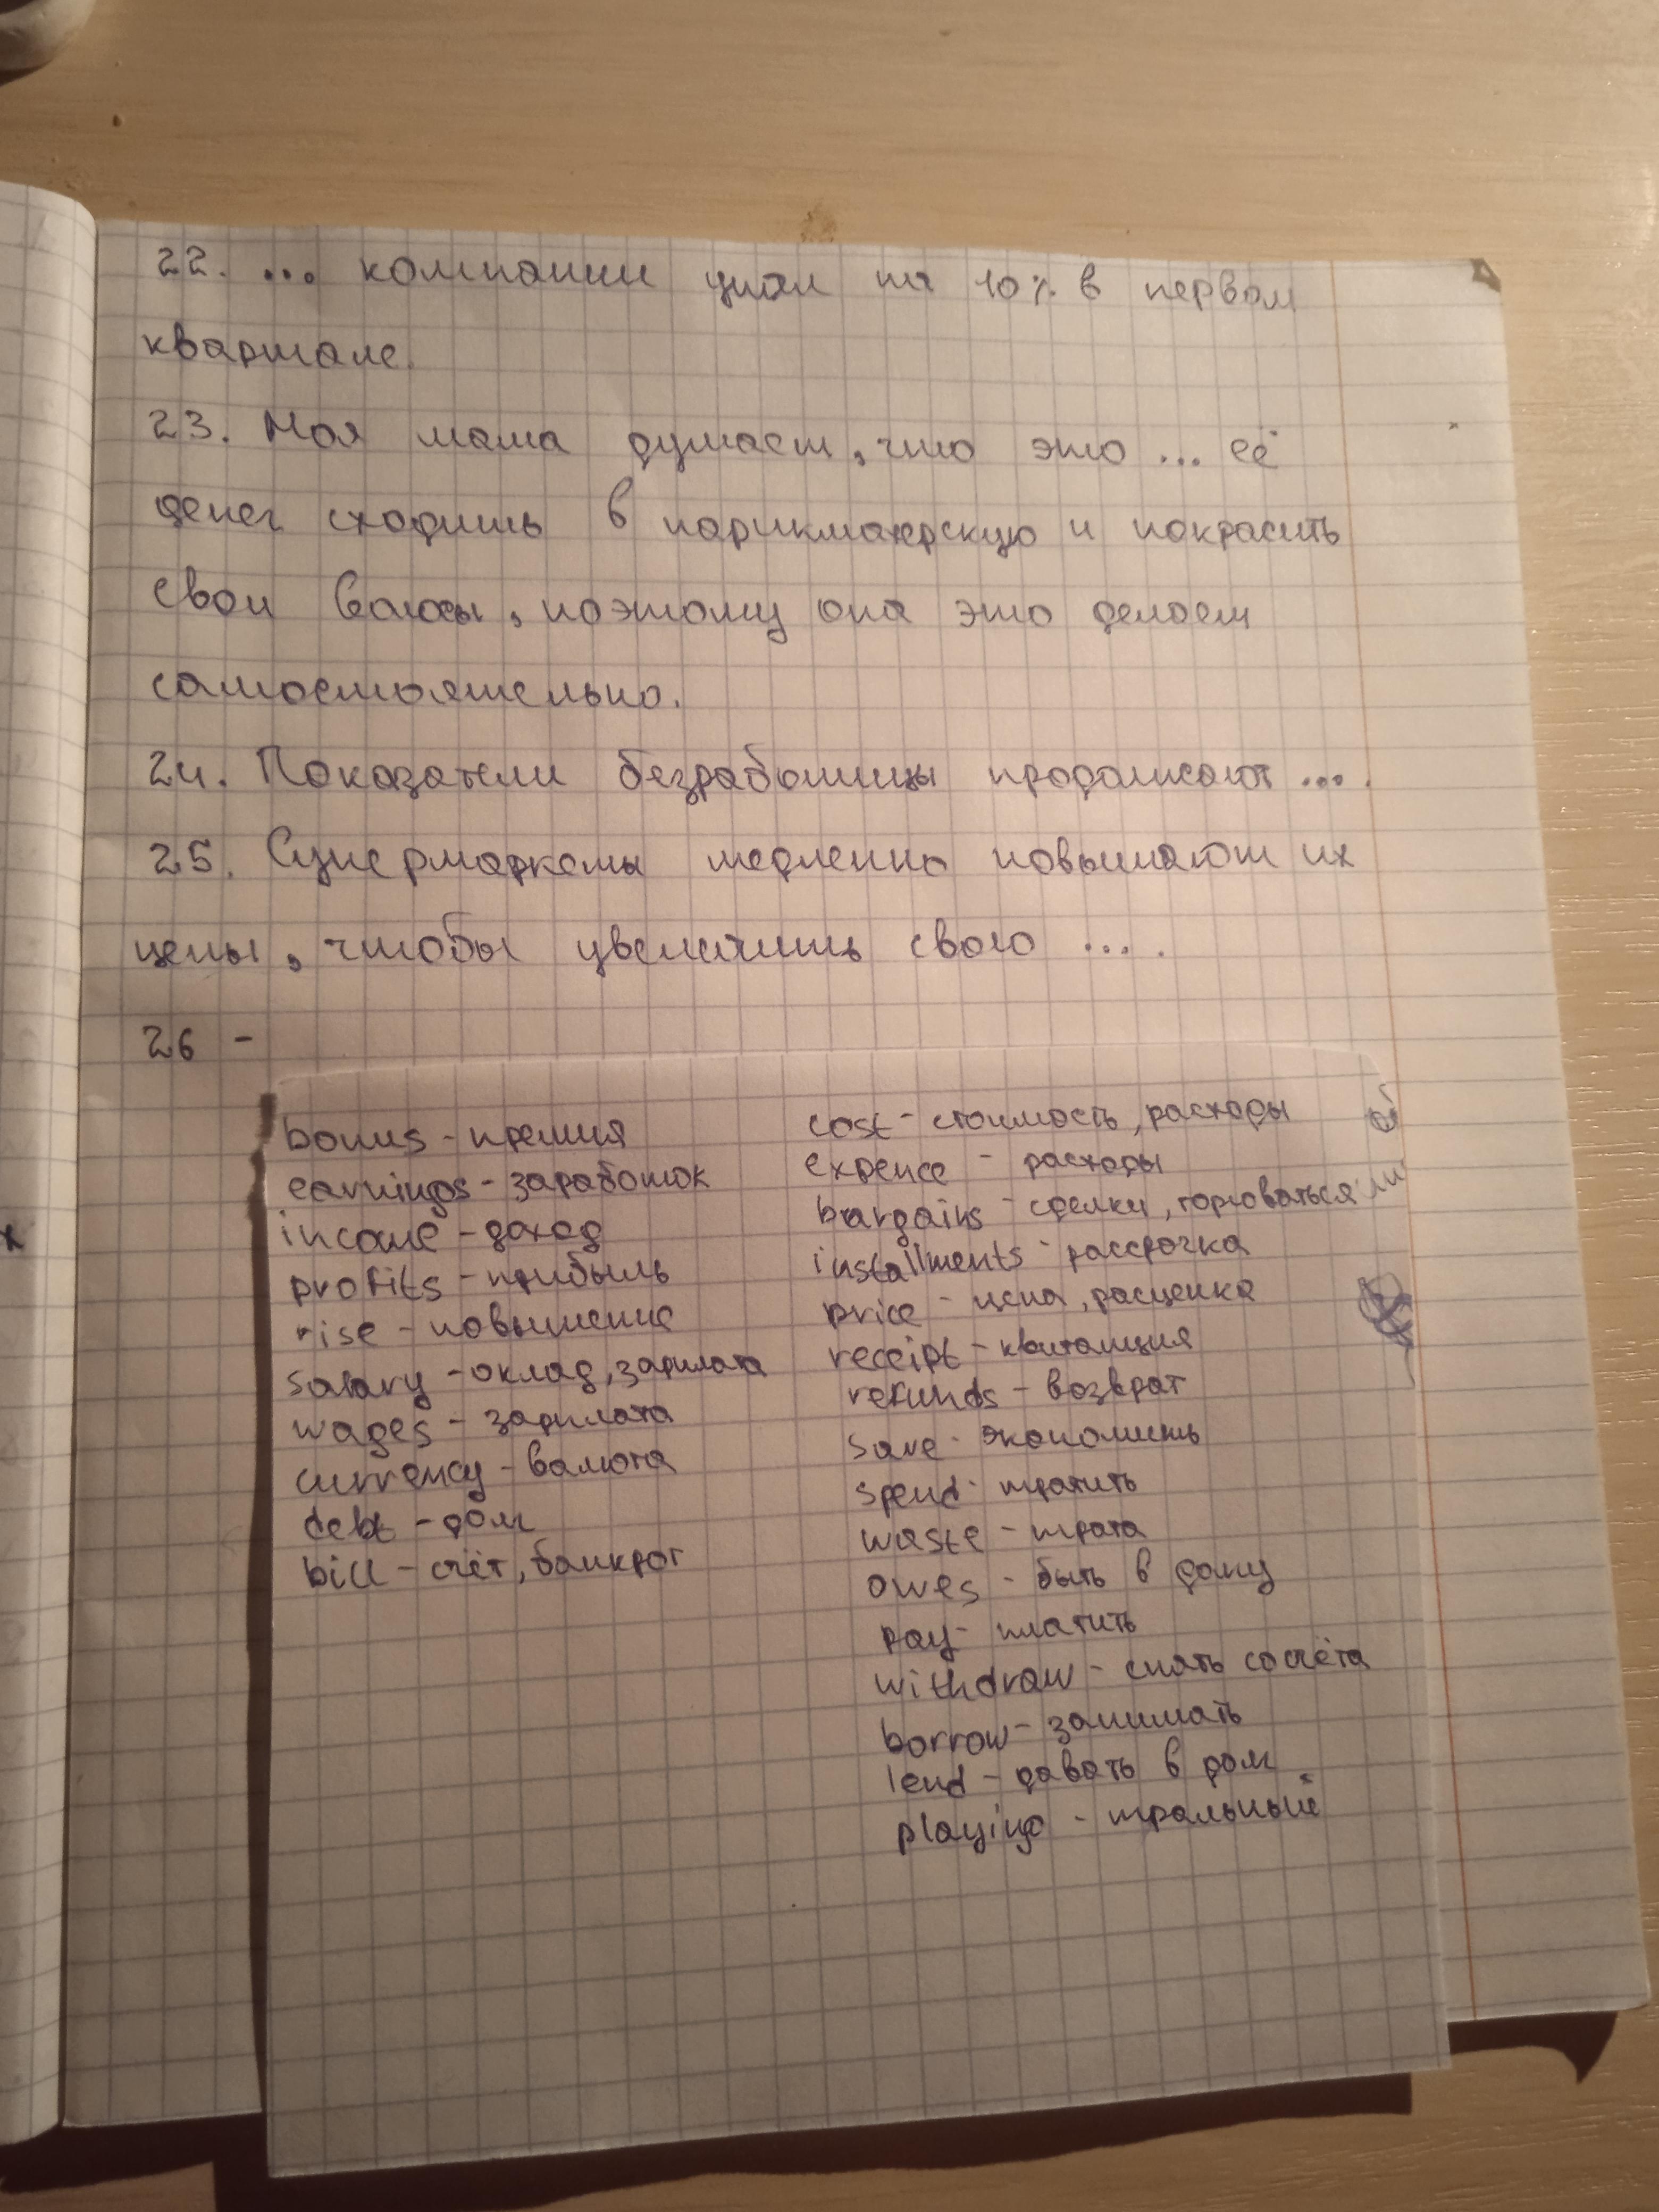 22. ... компании упал на 10% в первом
квартале.
23. Моя мама думает, что это ... её
денег сходить в парикмахерскую и покрасить
свои волосы, поэтому она это делает
самостоятельно.
24. Показатели безработицы продолжают ... .
25. Супермаркеты медленно повышают их
цены, чтобы увеличить свою ... .
26 -
bonus - премия
earnings - заработок
income - доход
profits - прибыль
rise - повышение
salary - оклад, зарплата
wages - зарплата
currency - валюта
debt - долг
bill - счёт, банкрот
cost - стоимость, расходы
expence - расходы
bargains - сделки, торговаться
installments - рассрочка
price - цена, расценка
receipt - квитанция
refunds - возврат
save - экономить
spend - тратить
waste - трата
owes - быть в долгу
pay - платить
withdraw - снять со счёта
borrow - занимать
lend - давать в долг
playing -